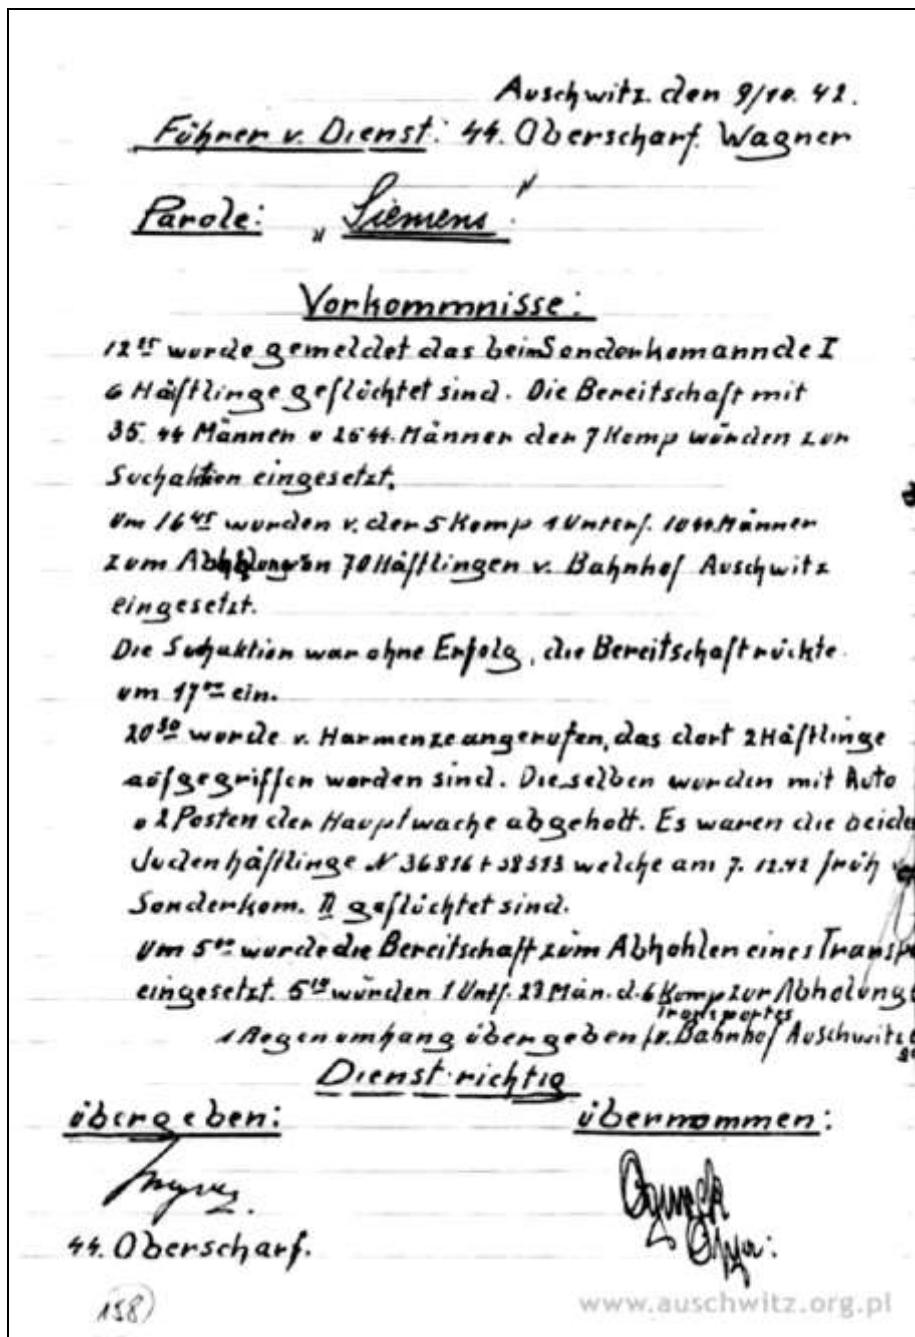 Auschwitz. den 9/10. 42.
Führer v. Dienst: 44. Oberscharf. Wagner
Parole: „Siemens"
Vorkommnisse:
12 wurde gemeldet das beim Sonderkomannde I
6 Häftlinge geflüchtet sind. Die Bereitschaft mit
35. 44 Männer u 25 44. Männer der 7 Komp würden zur
Suchaktion eingesetzt.
Um 16 45 wurden v. der 5 Komp 1 Unterf. 10 44 Männer
zum von 70 Häftlingen v. Bahnhof Auschwitz
eingesetzt.
Die Suchaktion war ohne Erfolg, die Bereitschaft rückte
um 17 00 ein.
20 30 wurde v. Harmenze angerufen, das dort 2 Häftlinge
aufgegriffen worden sind. Dieselben wurden mit Auto
u 2 Posten der Hauptwache abgeholt. Es waren die beide
Judenhäftlinge N 36816 + 38313 welche am 7. 12.42 früh
Sonderkom. II geflüchtet sind.
Um 5 00 wurde die Bereitschaft zum Abhohlen eines Transp
eingesetzt. 5 würden 1 Untf. 28 Män. d. 6 Komp zur Abholung
Transportes
1 Regenumhang übergeben v. Bahnhof Auschwitz
Dienst richtig
übergeben: übernommen:
44. Oberscharf.
158)
www.auschwitz.org.pl